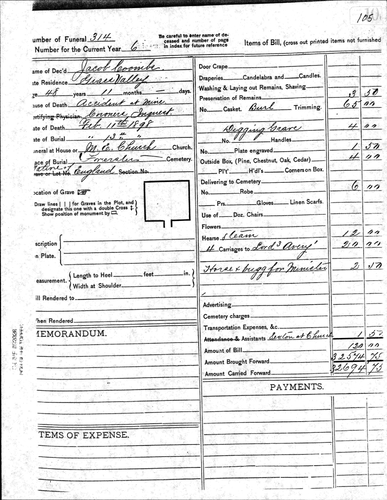 105
umber of Funeral 314
Number for the Current Year 6
Be careful to enter name of deceased and number of page in index for future reference
Items of Bill, (cross out printed items not furnished
ame of Dec'd Jacob Coombe
te Residence Grass Valley
ge 48 years 11 months - days
use of Death Accident at Mine
rtifying Physician Coroner Inquest
ate of Death Feb 10th 1898
ate of Burial " 13th "
neral at M. E. Church Church.
ace of Burial Cemetery.
or Lot No. England Section No.
ocation of Grave
Draw lines for Graves in the Plot, and designate this one with a double Cross
Show position of monument by
scription
n Plate.
easurement. Length to Heel feet in.
Width at Shoulder
ill Rendered to
hen Rendered
MEMORANDUM.
TEMS OF EXPENSE.
Door Crape
Draperies Candelabra and Candles.
Washing & Laying out Remains, Shaving,
Preservation of Remains 3 50
No. Casket, Burl Trimming. 65 00
Digging Grave 4 00
No. Handles
Plate engraved 1 50
Outside Box, (Pine, Chestnut, Oak, Cedar) 4 00
P'r H'd'l's Corners on Box.
Delivering to Cemetery 6 00
No. Robe
Prs. Gloves Linen Scarfs.
Use of Doz. Chairs
Flowers
Hearse Steam 12 00
4 Carriages to 20 00
Horse & bugg for Minister 2 50
Advertising
Cemetery charges
Transportation Expenses, &c
Attendance & Assistants Sexton at Church 1 50
Amount of Bill 120 00
Amount Brought Forward 32574 75
Amount Carried Forward 32694 75
PAYMENTS.